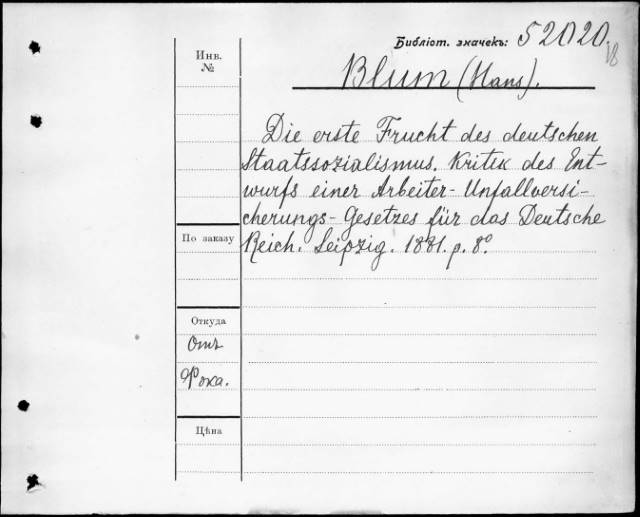 Библіот. значекъ: 52020.
18
Инв.
№
Blum (Hans).
Die erste Frucht des deutschen
Staatssozialismus. Kritik des Ent-
wurfs einer Arbeiter-Unfallversi-
cherungs-Gesetzes für das Deutsche
По заказу
Reich. Leipzig. 1881. p. 8º
Откуда
Отъ
Фока.
Цѣна